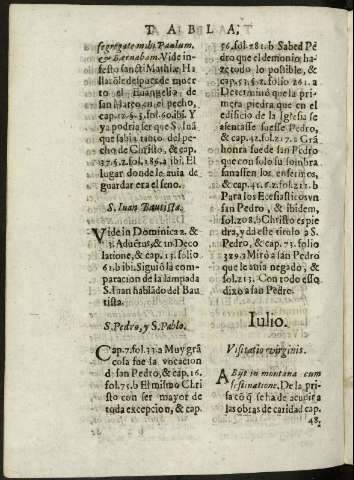 TABLA,
segregate mihi Paulum,
& Barnabam. Vide in
festo sancti Mathiæ Ha
llarõle despues de muer
to el Euangelio de
san Marco en el pecho,
cap. 12. §. 5. fol. 60. ibi. Y
ya podria ser que S. Iuã
que sabia tanto del pe
cho de Christo, & cap.
37. §. 2. fol. 189. a ibi. El
lugar donde le auia de
guardar era el seno.
S. Iuan Bautista.
Vide in Dominica 2. &
3. Aduẽtus, & in Deco
latione, & cap. 13. folio
61. b ibi. Siguiò la com-
paracion de la lampada
S. Iuan hablãdo del Bau
tista.
S. Pedro, y S. Pablo.
Cap. 7. fol. 33. a Muy grã
cosa fue la vocacion
d san Pedro, & cap. 16.
fol. 75. b El mismo Chri
sto con ser mayor de
toda excepcion, & cap.
56. fol. 281. b Sabed Pe
dro que el demonio ha-
ze todo lo possible, &
cap. 51. §. 2. folio 261. a
Determinò que la pri
mera piedra que en el
edificio de la Iglesia se
assentasse fuesse Pedro,
& cap. 42. fol. 217. a Grã
honra fue de san Pedro
que con solo su sombra
sanassen los enfermos,
& cap. 41. §. 2. fol. 212. b
Para los Eclesiasticos vn
san Pedro, & ibidem,
fol. 208. b Christo es pie
dra, y da este titulo a S.
Pedro, & cap. 73. folio
329. a Mirò a san Pedro
que le auia negado, &
fol. 213. Con todo esso
dixo a san Pedro.
Iulio.
Visitatio virginis.
Abijt in montana cum
festinatione. De la pri
sa cõ q̃ se ha de acudir a
las obras de caridad cap.
48.